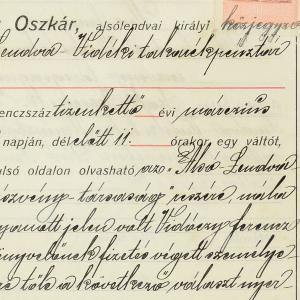 Oszkár, alsólendvai királyi közjegyző
Lendva-Vidéki takarékpénztár
enczszáz tizenkettő évi márczius
napján, délelőtt 11. órakor egy váltót,
ulsó oldalon olvasható az "Alsó-Lendva
észvény-társaság" részére, nála
yanott jelen volt Vidóczy ferencz
könyvelőnek fizetés végett személye
re tőle a következő választ nyer-